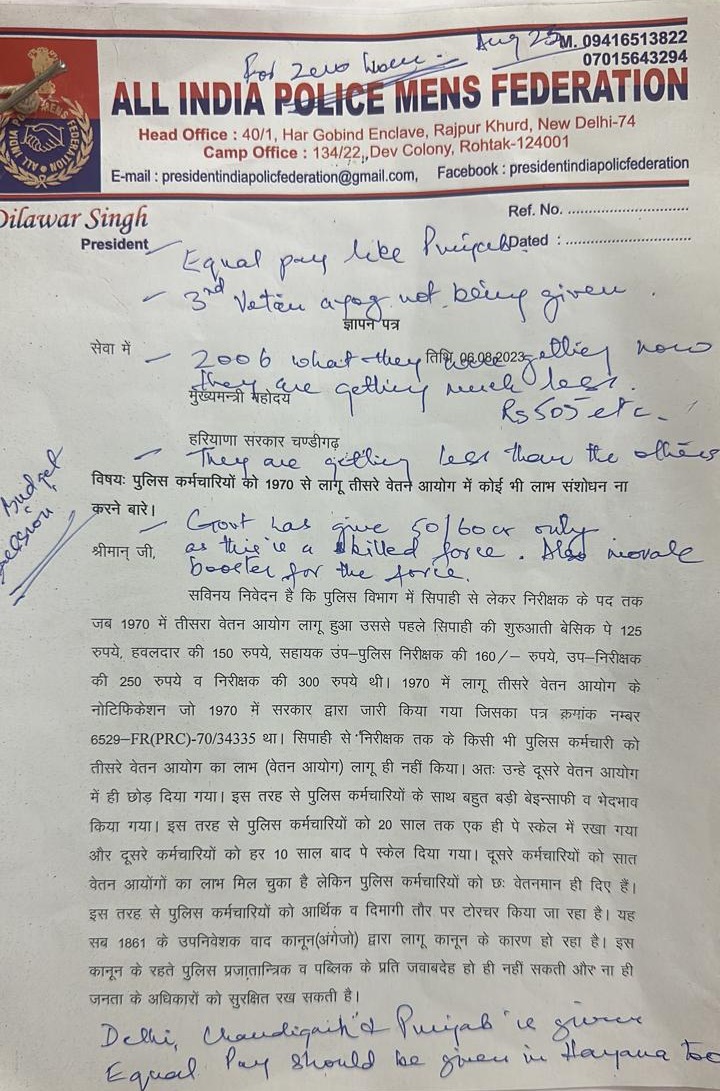 For Zero hour. Aug 25
M. 09416513822
07015643294
ALL INDIA POLICE MENS FEDERATION
Head Office : 40/1, Har Gobind Enclave, Rajpur Khurd, New Delhi-74
Camp Office : 134/22,,Dev Colony, Rohtak-124001
E-mail : presidentindiapolicfederation@gmail.com, Facebook : presidentindiapolicfederation
Dilawar Singh
President
Ref. No. ................................
Dated : .................................
Equal pay like Punjab
3rd Vetan ayog not being given.
ज्ञापन पत्र
सेवा में
2006 what they were getting now
तिथि 06.08.2023
they are getting much less.
मुख्यमन्त्री महोदय
Rs 505 etc.
हरियाणा सरकार चण्डीगढ़
They are getting less than the others
Budget
विषयः पुलिस कर्मचारियों को 1970 से लागू तीसरे वेतन आयोग में कोई भी लाभ संशोधन ना
करने बारे।
Govt has give 50/60cr only
श्रीमान् जी,
as this is a skilled force. Also morale
booster for the force.
सविनय निवेदन है कि पुलिस विभाग में सिपाही से लेकर निरीक्षक के पद तक
जब 1970 में तीसरा वेतन आयोग लागू हुआ उससे पहले सिपाही की शुरुआती बेसिक पे 125
रुपये, हवलदार की 150 रुपये, सहायक उप–पुलिस निरीक्षक की 160/– रुपये, उप–निरीक्षक
की 250 रुपये व निरीक्षक की 300 रुपये थी। 1970 में लागू तीसरे वेतन आयोग के
नोटिफिकेशन जो 1970 में सरकार द्वारा जारी किया गया जिसका पत्र क्रमांक नम्बर
6529–FR(PRC)-70/34335 था। सिपाही से निरीक्षक तक के किसी भी पुलिस कर्मचारी को
तीसरे वेतन आयोग का लाभ (वेतन आयोग) लागू ही नहीं किया। अतः उन्हे दूसरे वेतन आयोग
में ही छोड़ दिया गया। इस तरह से पुलिस कर्मचारियों के साथ बहुत बड़ी बेइन्साफी व भेदभाव
किया गया। इस तरह से पुलिस कर्मचारियों को 20 साल तक एक ही पे स्केल में रखा गया
और दूसरे कर्मचारियों को हर 10 साल बाद पे स्केल दिया गया। दूसरे कर्मचारियों को सात
वेतन आयोंगों का लाभ मिल चुका है लेकिन पुलिस कर्मचारियों को छः वेतनमान ही दिए हैं।
इस तरह से पुलिस कर्मचारियों को आर्थिक व दिमागी तौर पर टोरचर किया जा रहा है। यह
सब 1861 के उपनिवेशक वाद कानून(अंगेजो) द्वारा लागू कानून के कारण हो रहा है। इस
कानून के रहते पुलिस प्रजातान्त्रिक व पब्लिक के प्रति जवाबदेह हो ही नहीं सकती और ना ही
जनता के अधिकारों को सुरक्षित रख सकती है।
Delhi, Chandigarh & Punjab is given
Equal Pay should be given in Haryana too